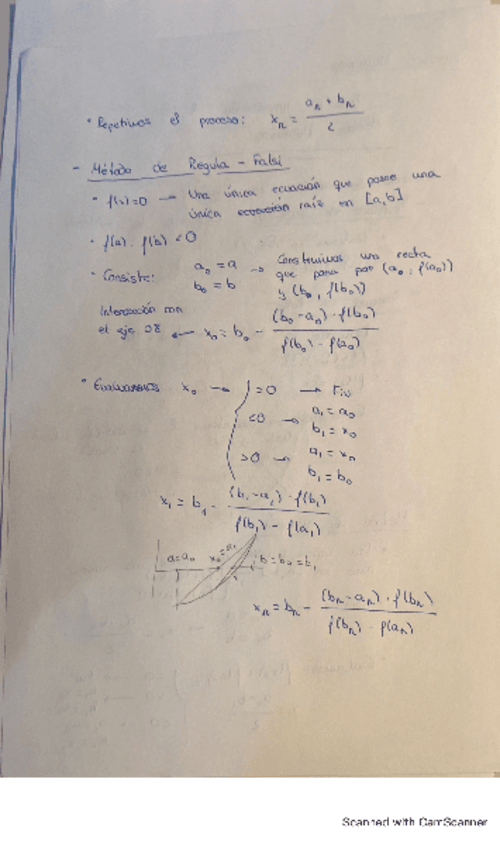 · Repetimos el proceso: xₙ = (aₙ + bₙ)/2
- Método de Regula - Falsi
· f(x)=0 → Una única ecuación que posee una
única ecuación raíz en [a,b]
· f(a) · f(b) < 0
· Consiste: a₀ = a → Construimos una recta
b₀ = b que pasa por (a₀, f(a₀))
y (b₀, f(b₀))
Intersección con
el eje ← x₀ = b₀ - (b₀ - a₀) · f(b₀) / f(b₀) - f(a₀)
· Evaluaremos x₀ → =0 → Fin
<0 → a₁ = a₀
b₁ = x₀
>0 → a₁ = x₀
b₁ = b₀
x₁ = b₁ - (b₁ - a₁) · f(b₁) / f(b₁) - f(a₁)
a=a₀ x₀=a₁ b=b₀=b₁
xₙ = bₙ - (bₙ - aₙ) · f(bₙ) / f(bₙ) - f(aₙ)
Scanned with CamScanner